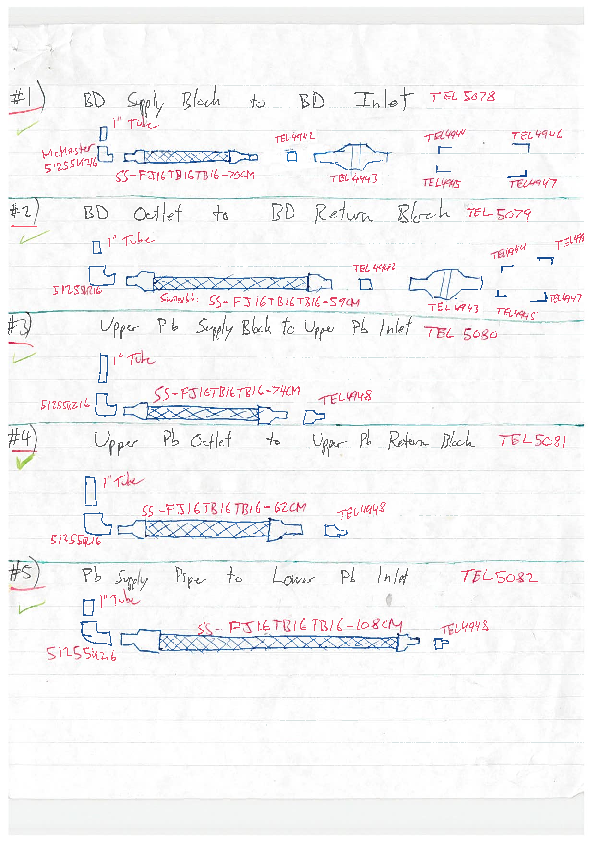 #1) BD Supply Block to BD Inlet TEL 5078
1" Tube
McMaster
51255K216
SS-FJ16TB16TB16-70CM
TEL4942
TEL4943
TEL4944
TEL4946
TEL4945
TEL4947
#2) BD Outlet to BD Return Block TEL 5079
1" Tube
51255K216
SS-FJ16TB16TB16-59CM
TEL4942
TEL4943
TEL4944
TEL4945
TEL4947
#3) Upper Pb Supply Block to Upper Pb Inlet TEL 5080
1" Tube
51255K216
SS-FJ16TB16TB16-74CM
TEL4948
#4) Upper Pb Outlet to Upper Pb Return Block TEL5081
1" Tube
51255K216
SS-FJ16TB16TB16-62CM
TEL4948
#5) Pb Supply Pipe to Lower Pb Inlet TEL5082
1" Tube
51255K216
SS-FJ16TB16TB16-108CM
TEL4948